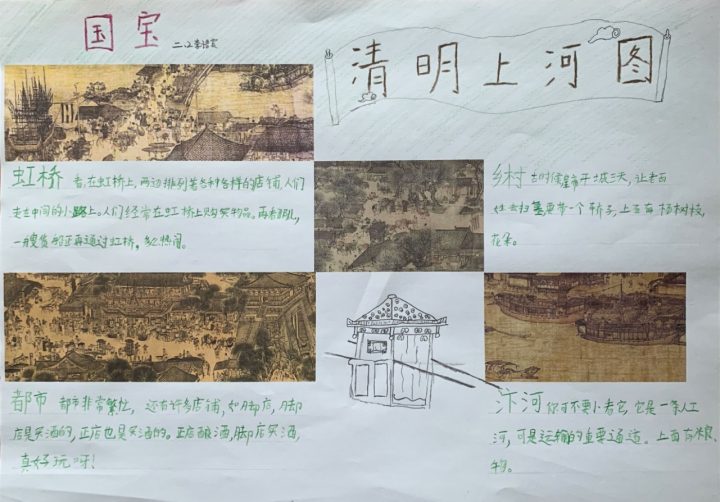 国宝 二.2
清明上河图
虹桥 看,在虹桥上,两边排列着各种各样的店铺,人们
走在中间的小路上。人们经常在虹桥上购买物品。再看那儿,
一艘货船正再通过虹桥,多么热闹。
乡村 古时候
去扫墓要带一个轿子,上面有杨树枝,
花朵。
都市 都市非常繁忙,还有许多店铺,如脚店,脚
店是买酒的,正店也是买酒的。正店酿酒,脚店买酒,
真好玩呀!
汴河 你可不要小看它,它是一条人工
河,可是运输的重要通道。上面有粮
物。